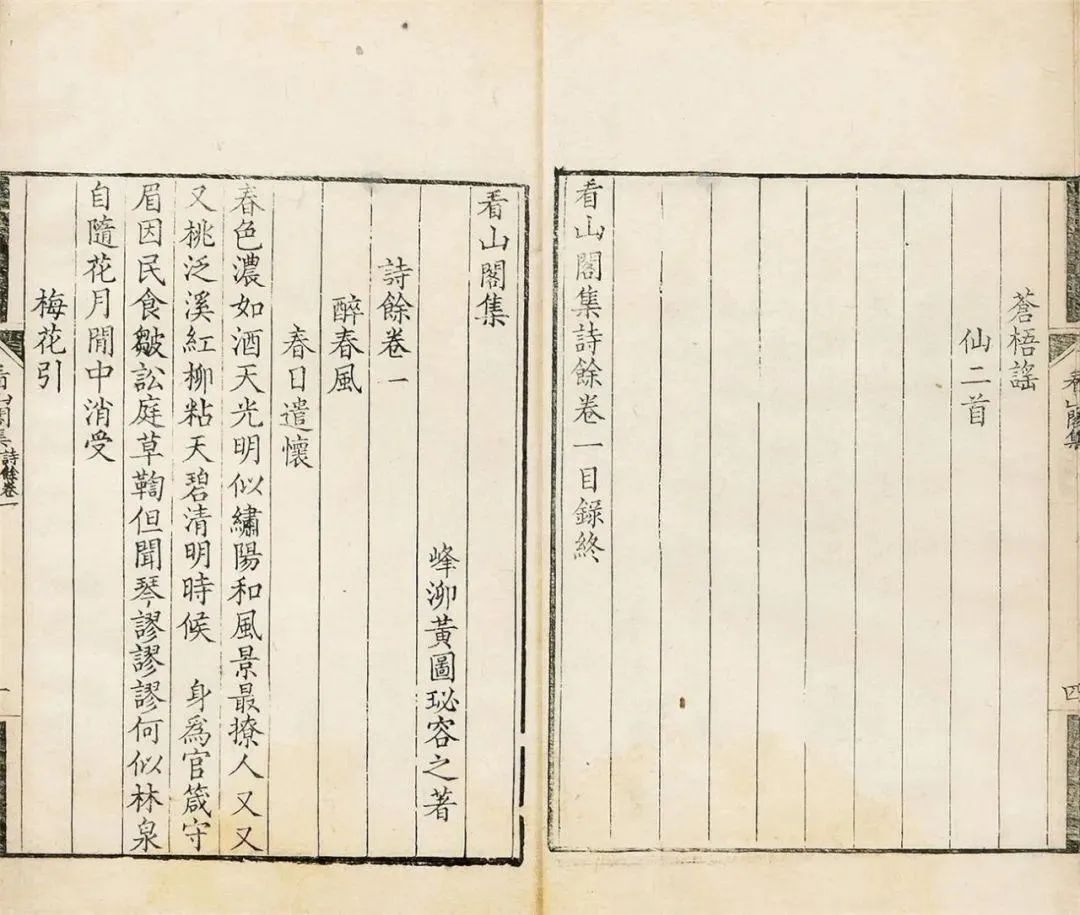 看山閣集
四
蒼梧謠
仙二首
看山閣集詩餘卷一目錄終
看山閣集
峰泖黃圖珌容之著
詩餘卷一
醉春風
春日遣懷
春色濃如酒天光明似繡陽和風景最撩人又又
又桃泛溪紅柳粘天碧清明時候　身為官箴守
眉因民食皺訟庭草鞫但聞琴謬謬謬何似林泉
自隨花月閒中消受
梅花引
看山閣集
詩餘卷一
一